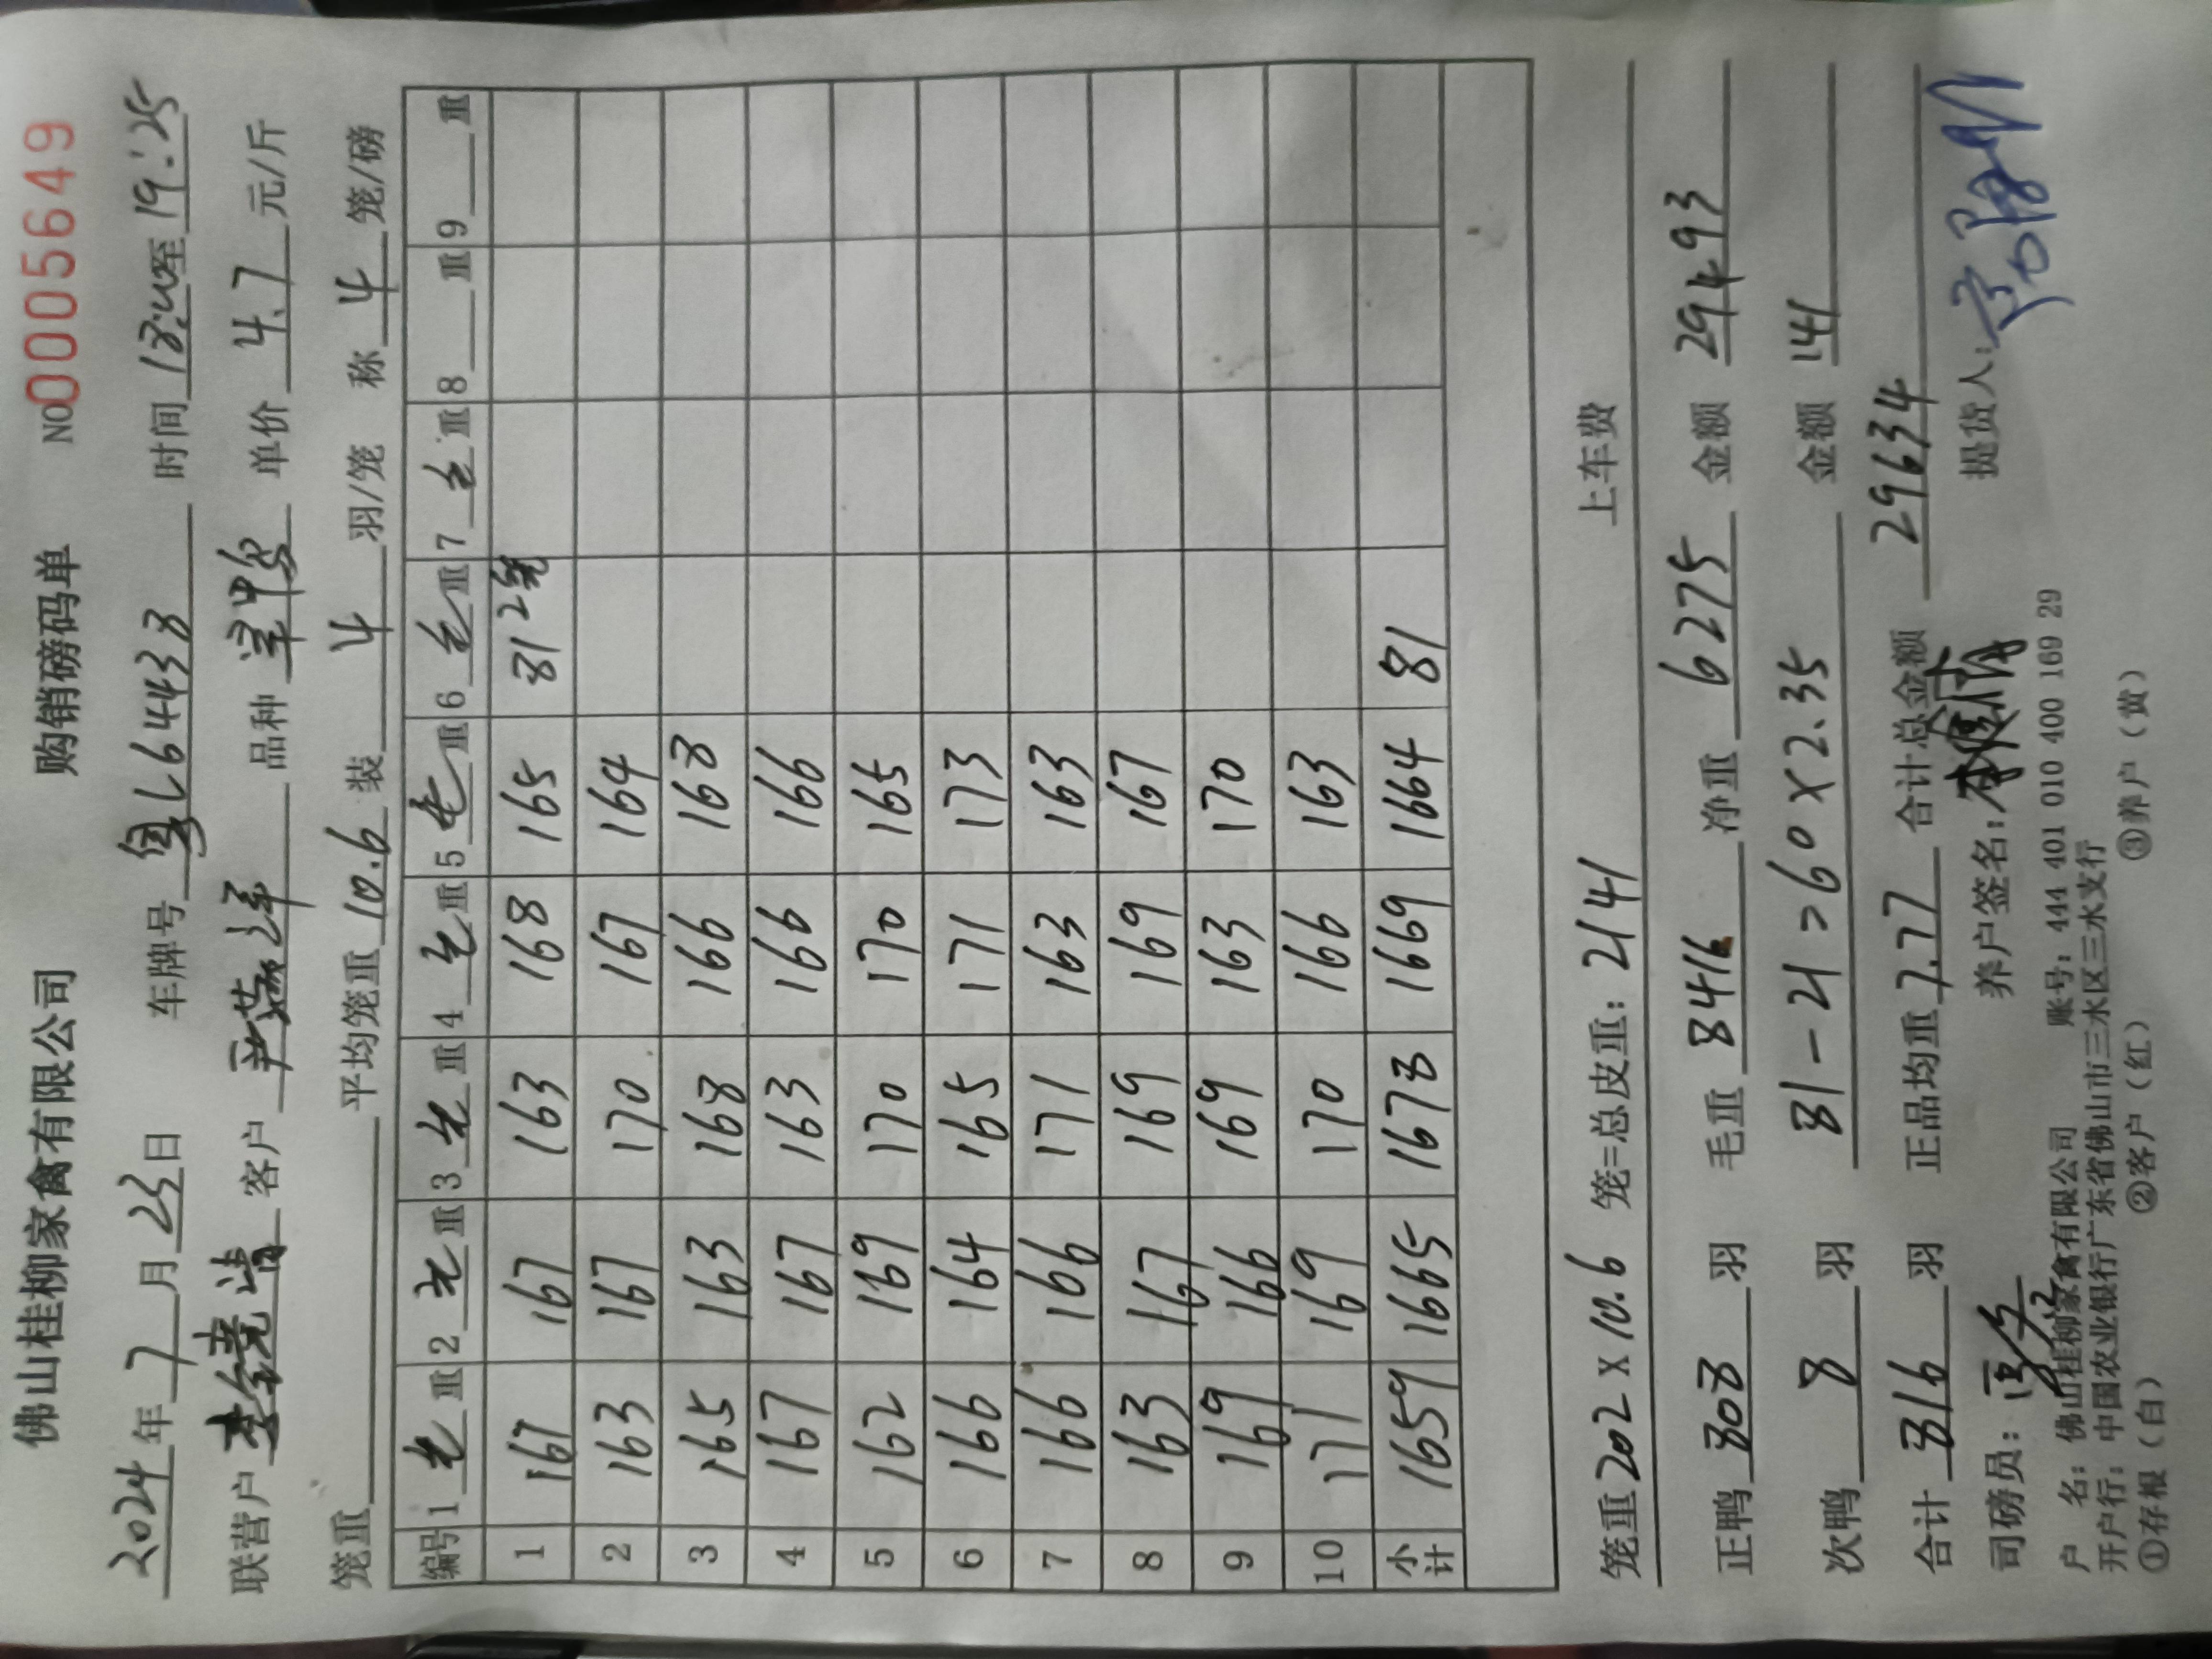 佛山桂柳家禽有限公司 购销磅码单 NO 00005649
2024年7月23日 车牌号 L64438 时间 至19:25
联营户 客户 品种 单价 4.7 元/斤
笼重 平均笼重 10.6 装 4 羽/笼 称 4 笼/磅
编号 1 毛 重 2 毛 重 3 毛 重 4 毛 重 5 毛 重 6 毛 重 7 毛 重 8 重 9 重
1 167 167 163 168 165 81 2笼
2 163 167 170 167 164
3 165 163 168 166 168
4 167 167 163 166 166
5 162 169 170 170 165
6 166 164 165 171 173
7 166 166 171 163 163
8 163 167 169 169 167
9 169 166 169 163 170
10 171 169 170 166 163
小计 1659 1665 1678 1669 1664 81
笼重 202 X 10.6 笼=总皮重: 2141 上车费
正鸭 808 羽 毛重 8416 净重 6275 金额 29493
次鸭 8 羽 81-21=60×2.35 金额 141
合计 816 羽 正品均重 7.77 合计总金额 29634
司磅员: 养户签名: 提货人:
户 名: 佛山桂柳家禽有限公司 账号: 444 401 010 400 169 29
开户行: 中国农业银行广东省佛山市三水区三水支行
①存根(白) ②客户(红) ③养户(黄)